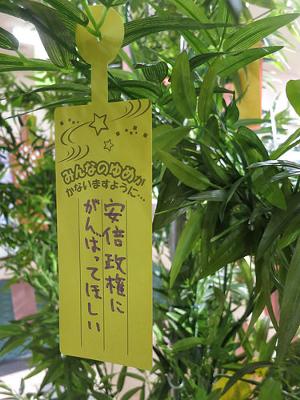 みんなのゆめが
かないますように…
安倍政権に
がんばってほしい